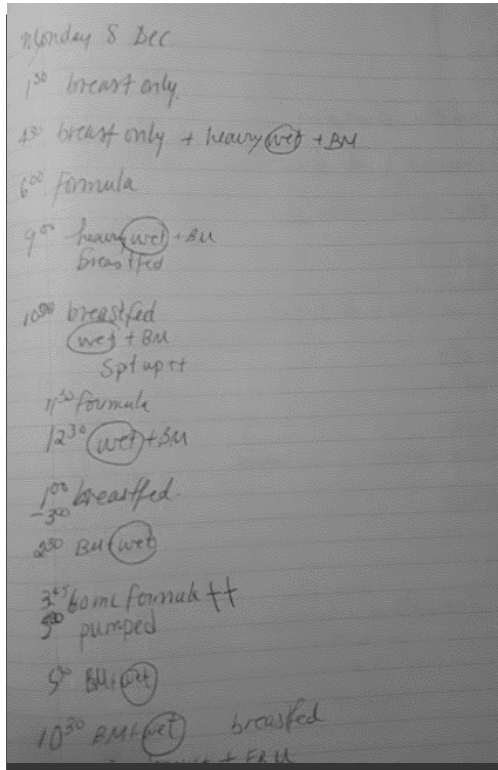 Monday 8 Dec
1³⁰ breast only.
4³⁰ breast only + heavy wet + BM
6⁰⁰ formula
9⁰⁰ heavy wet + BM
breastfed
10⁰⁰ breastfed
wet + BM
Spt up ++
11³⁰ formula
12³⁰ wet + BM
1⁰⁰ breastfed.
-3⁰⁰
2³⁰ BM + wet
3⁴⁵ 60 mL formula ++
5⁰⁰ pumped
5³⁰ BM + wet
10³⁰ BM + wet breastfed